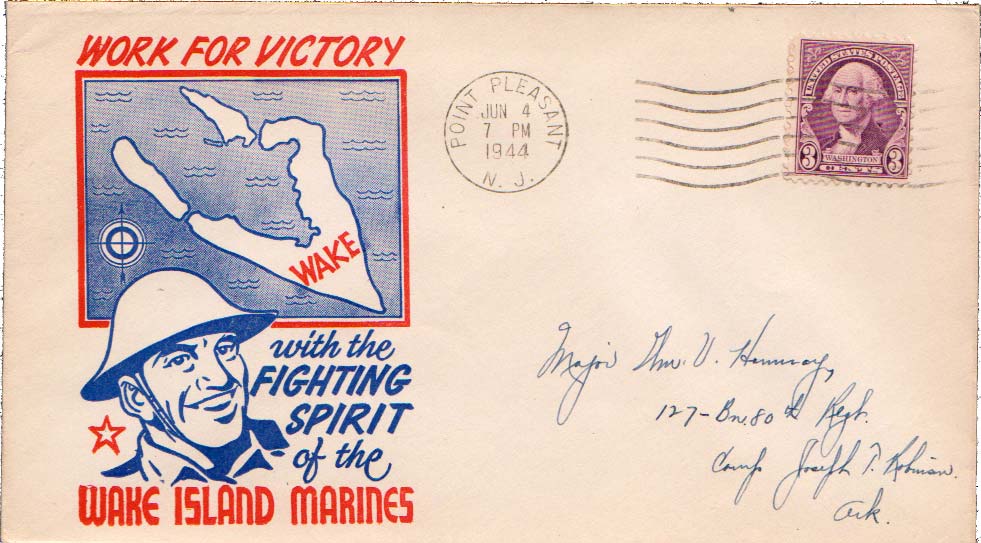 WORK FOR VICTORY
WAKE
with the
FIGHTING
SPIRIT
of the
WAKE ISLAND MARINES
POINT PLEASANT
JUN 4
7 PM
1944
N. J.
UNITED STATES POSTAGE
WASHINGTON
3 3
CENTS
Major Wm. V.
127-Bn. 80th Regt.
Camp Joseph T. Robinson.
Ark.